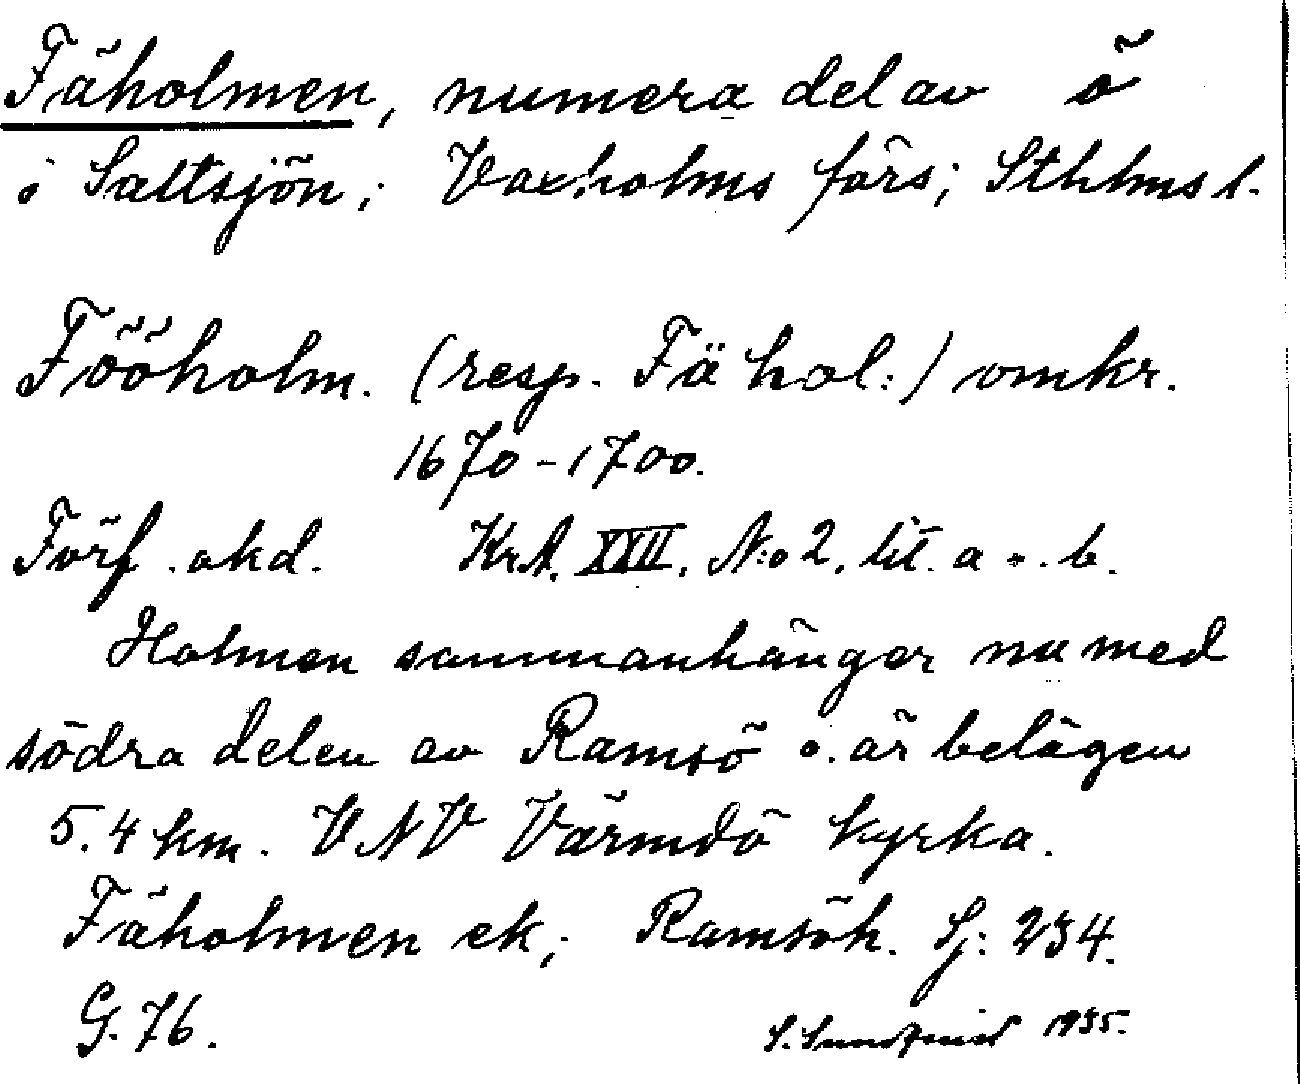 Fäholmen, numera del av ö
i Saltsjön; Vaxholms förs; Sthlms l.
Fööholm. (resp. Fä hol:) omkr.
1670-1700.
Förf. okd. KrA. XXII. N:o 2. lit. a o. b.
Holmen sammanhänger nu med
södra delen av Ramsö o. är belägen
5.4 km. VNV Värmdö kyrka.
Fäholmen ek; Ramsöh. Sj: 234.
G. 76.
1935.